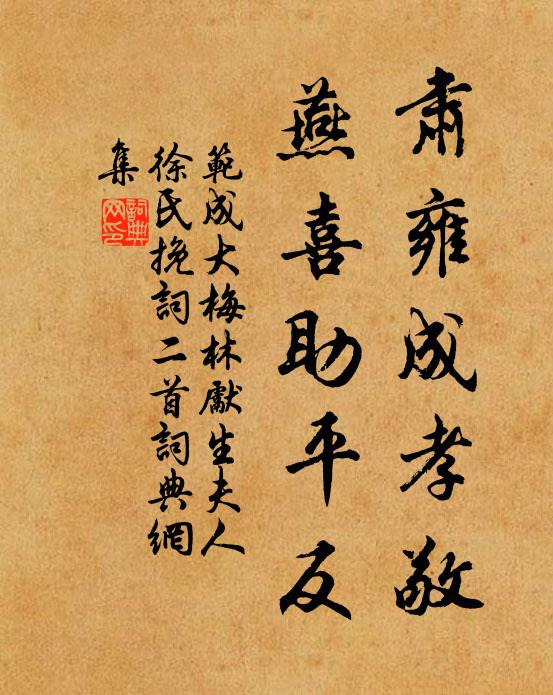 肅雍成孝敬
燕喜助平反
範成大梅林獻生夫人
徐氏挽詞二首詞典網
集
詞典網印